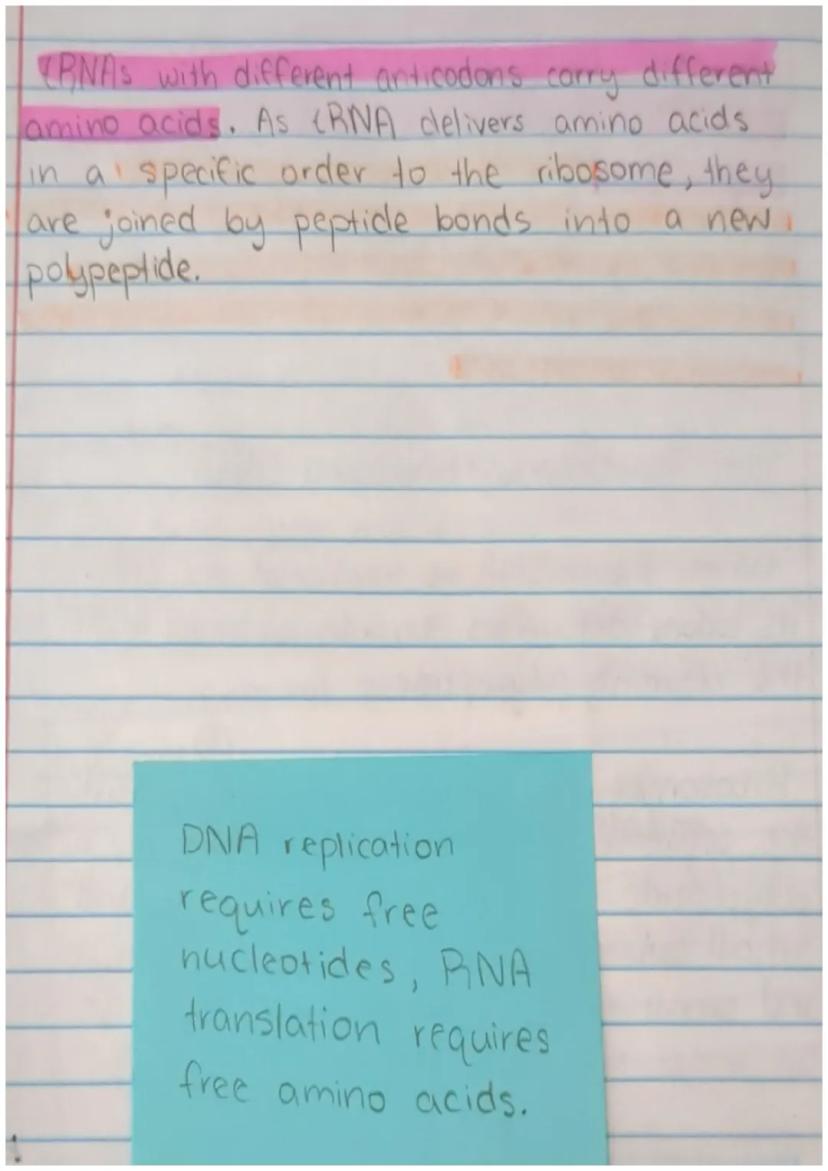 tRNAs with different anticodons carry different
amino acids. As tRNA delivers amino acids
in a specific order to the ribosome, they
are joined by peptide bonds into a new
polypeptide.
DNA replication
requires free
nucleotides, RNA
translation requires
free amino acids.